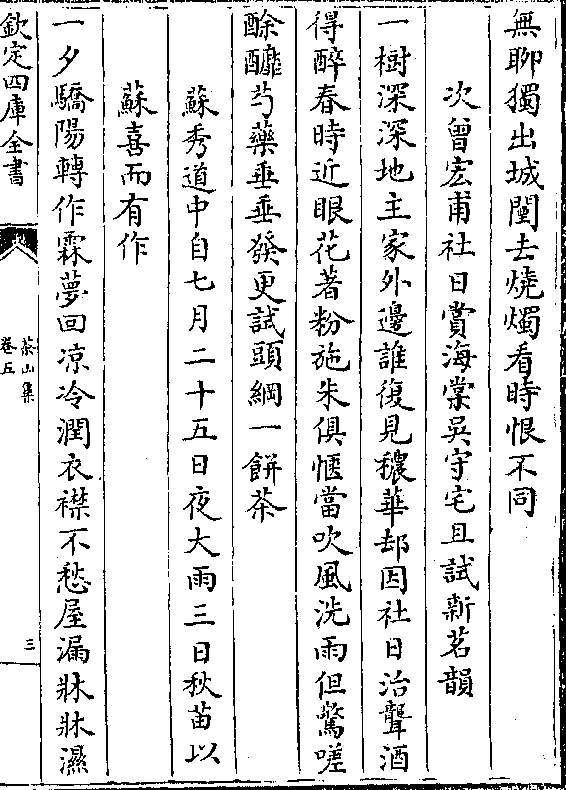 無聊獨出城闉去燒燭看時恨不同
次曾宏甫社日賞海棠吳守宅且試新茗韻
一樹深深地主家外邊誰復見穠華却因社日治聾酒
得醉春時近眼花著粉施朱俱愜當吹風洗雨但驚嗟
酴醿芍藥垂垂發更試頭綱一餅茶
蘇秀道中自七月二十五日夜大雨三日秋苗以
蘇喜而有作
一夕驕陽轉作霖夢回凉冷潤衣襟不愁屋漏牀牀濕
欽定四庫全書
茶山集
卷五
三